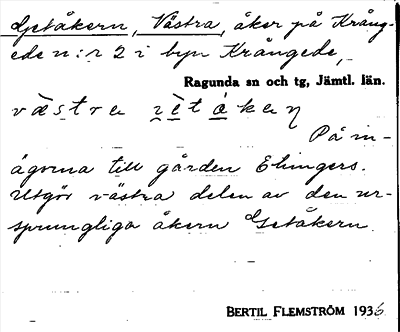 Getåkern, Västra, åker på Krång-
ede n:r 2 i byn Krångede,
Ragunda sn och tg, Jämtl. län.
På in-
ägorna till gården Elingers.
Utgör västra delen av den ur-
sprungliga åkern Getåkern.
BERTIL FLEMSTRÖM 1936